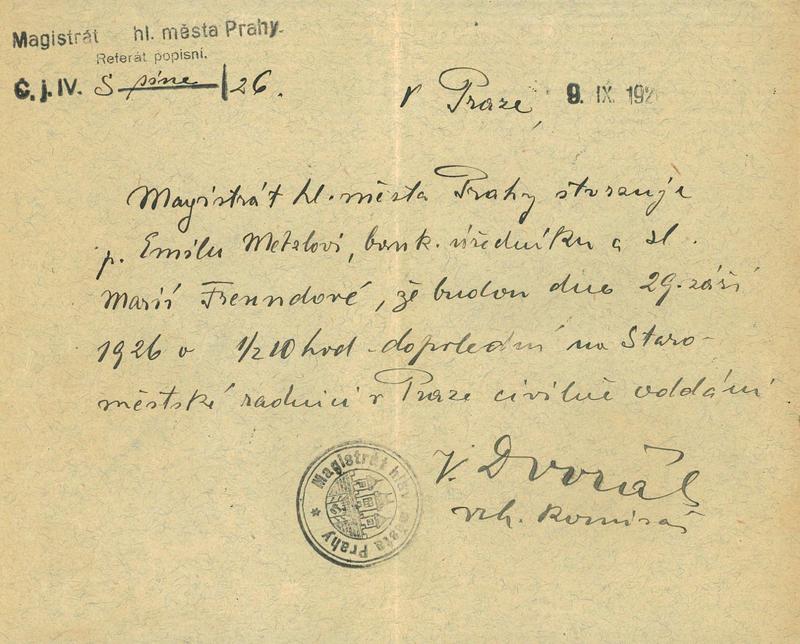 Magistrát hl. města Prahy.
Referát popisní.
Č. j. IV. S /26.
V Praze, 9. IX. 192
Magistrát hl. města Prahy stvrzuje
p. Emilu Metzlovi, bank. úředníku a sl.
Marii Freundové, že budou dne 29. září
1926 o 1/2 10 hod. dopolední na Staro-
městské radnici v Praze civilně oddáni
V. Dvořák
vrch. komisař
Magistrát hlav. města Prahy